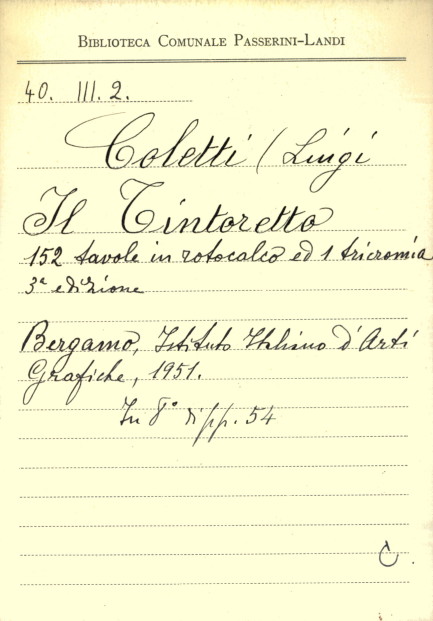 BIBLIOTECA COMUNALE PASSERINI-LANDI
40. III. 2.
Coletti (Luigi
Il Tintoretto
152 tavole in rotocalco ed 1 tricromia
3ª edizione
Bergamo, Istituto Italiano d'Arti
Grafiche, 1951.
In 8° di pp. 54